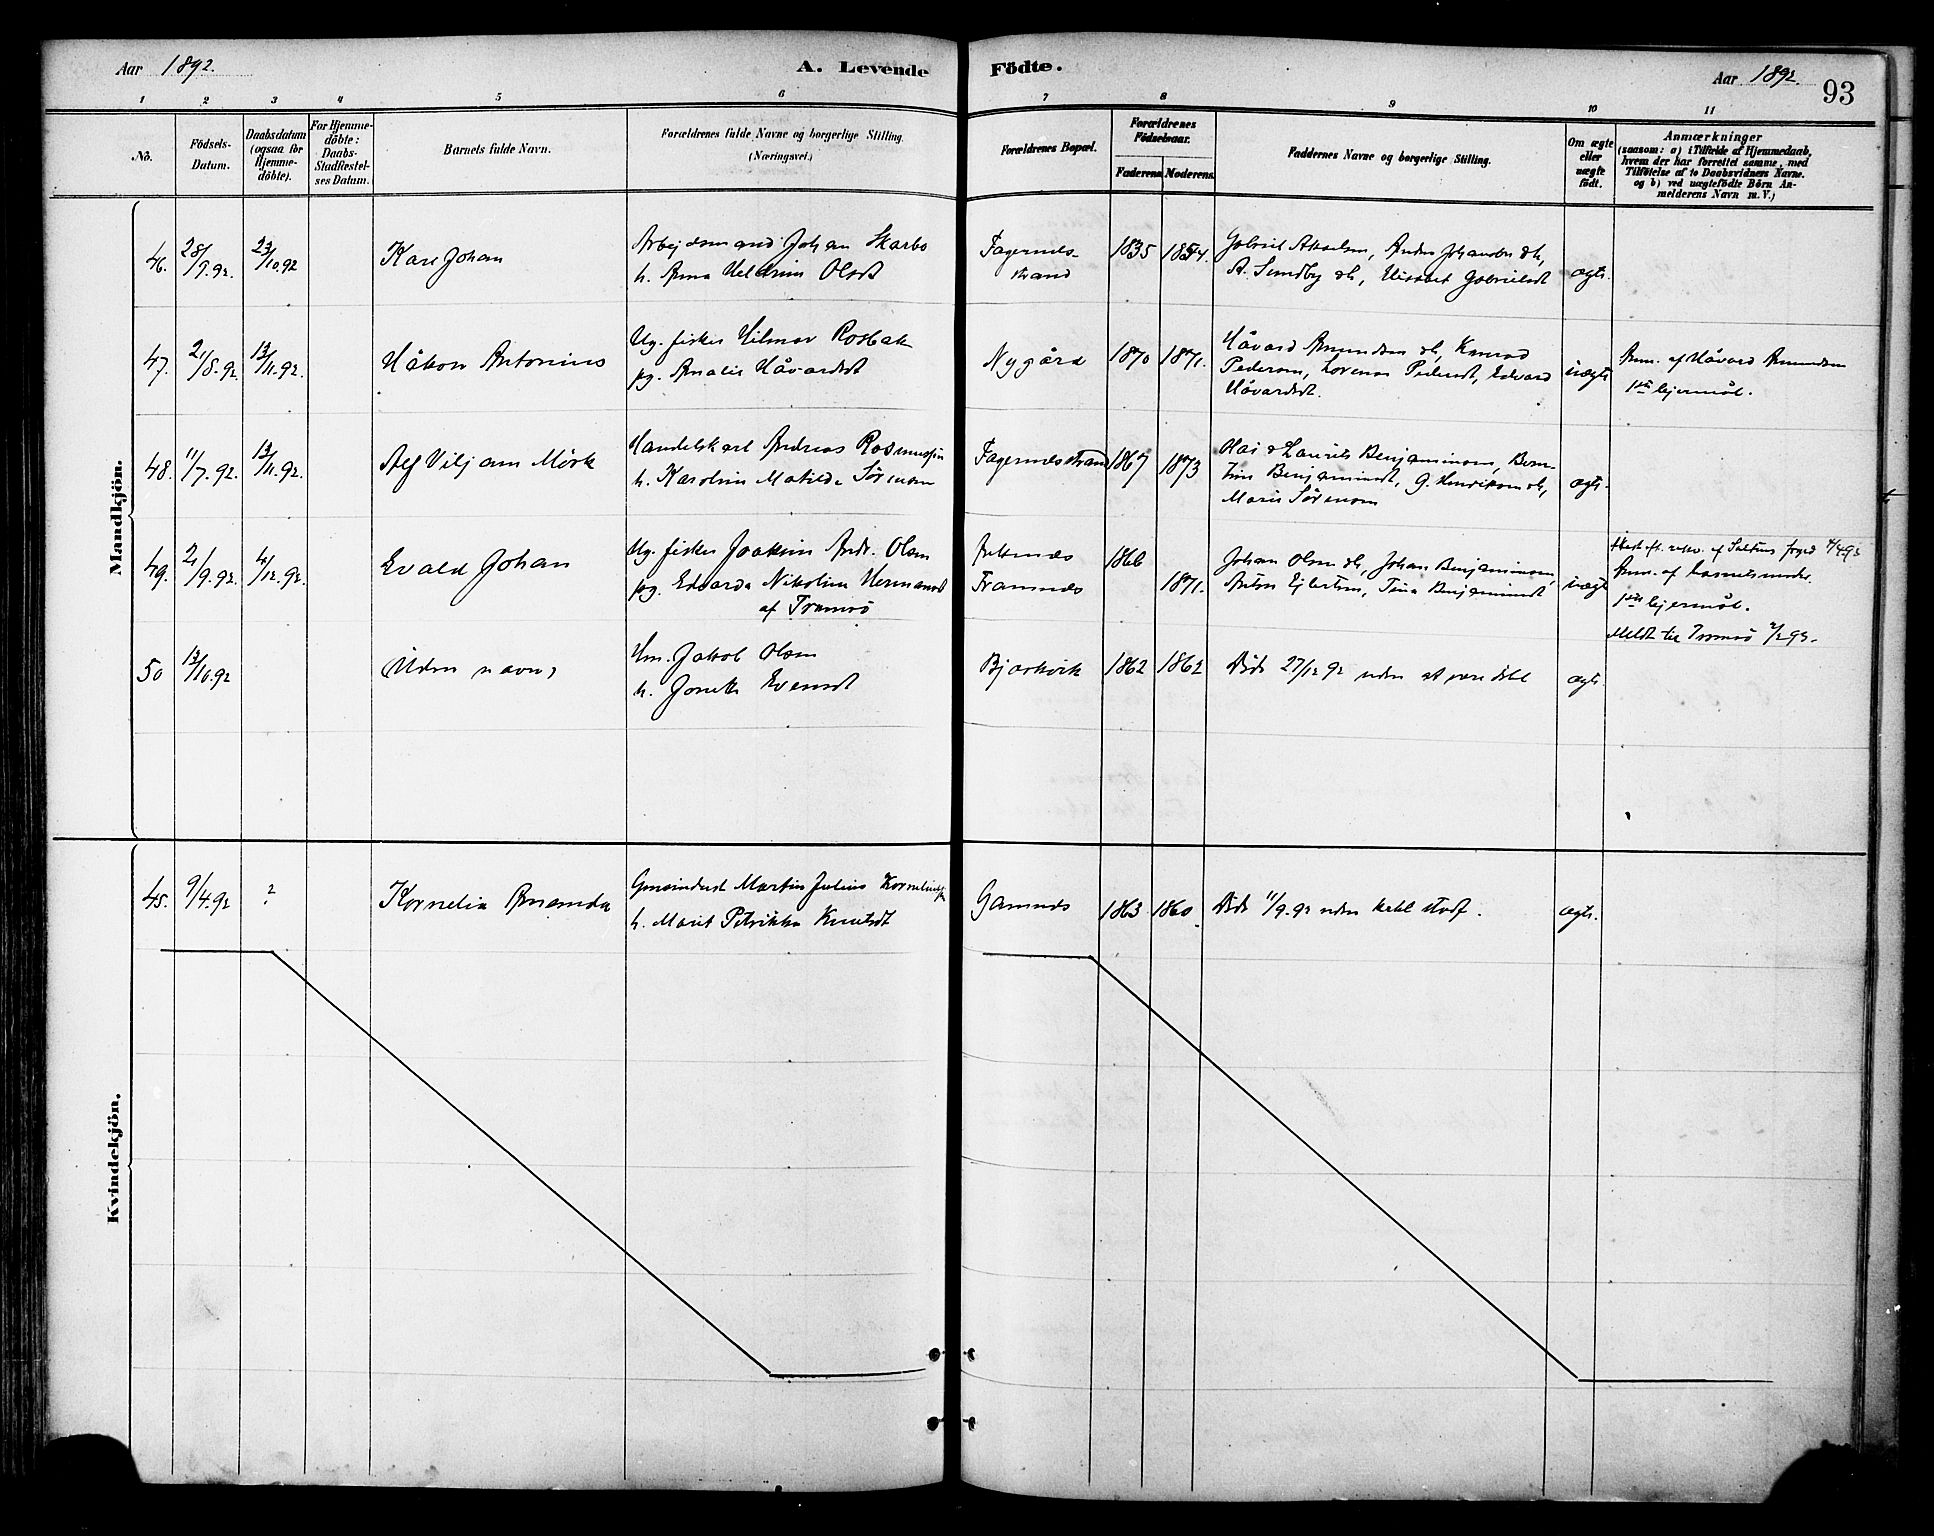 Aar 1892.
A. Levende Födte.
Aar 1892.
93
1 2 3 4 5 6 7 8 9 10 11
No.
Födsels-Datum.
Daabsdatum (ogsaa for Hjemme-döbte).
For Hjemme-döbte: Daabs-Stadfæstel-ses Datum.
Barnets fulde Navn.
Forældrenes fulde Navne og borgerlige Stilling.
(Næringsvei.)
Forældrenes Bopæl.
Forældrenes Födselsaar.
Faderens. Moderens.
Faddernes Navne og borgerlige Stilling.
Om ægte eller uægte födt.
Anmærkninger
(saasom: a) i Tilfælde af Hjemmedaab,
hvem der har forrettet samme, med
Tilföielse af to Daabsvidners Navne.
og b) ved uægtefödte Börn An-
melderens Navn m. V.)
Mandkjön.
46. 28/7.92. 23/10.92 Karl Johan
Arbejdsmand Johan Skarbo
h. Anna Olsdt
Fagernes-
strand
1835 1854.
Gabriel Akselsen, Anders Johansen
A. Sundby Elisabet Gabrielsdt
ægte.
47. 21/8.92. 13/11.92. Håkon Antonius
Ug. fisker Hilmar Rosbak
pg. Amalie Håvardsdt
Nygård
1870 1871.
Håvard Amundsen Konrad
Pedersen, Lorense Pedersdt, Edvard
Håvardsdt.
uægte
Anm. af Håvard Amundsen
1ste lejermål.
48. 11/7.92. 13/11.92. Alf Viljam Mörk
Handelskarl Andreas Rasmussen
h. Karoline Matilde Sörensen
Fagernesstrand
1867 1873
Laurits Benjaminsen, Bern-
tine Benjaminsdt, G. Henriksen
Marie Sörensen
ægte.
49. 21/9.92. 4/12.92. Evald Johan
Ug. fisker Joakim Andr. Olsen
pg. Edvarda Nikoline Hermansd
af Tromsö
Ankenes
Framnes
1866
1871.
Johan Olsen Johan Benjaminsen,
Anton Ejlertsen, Tina Benjaminsdt
uægte
Anm. af barnets moder.
1ste lejermål.
Meldt til Tromsö
50 13/10.92
Uden navn,
Hm. Jakob Olsen
h. Jonette Evensdt
Bjerkvik
1862 1862
Död 27/12 92 uden at være döbt
ægte.
Kvindekjön.
45. 9/4.92 ? Kornelia Amanda
Gaardmand Martin Julius Korneliussen
h. Marit Petrikke Knutsdt
Gamnes
1863 1860.
Död 11/9.92 uden kirkl. stadf.
ægte.